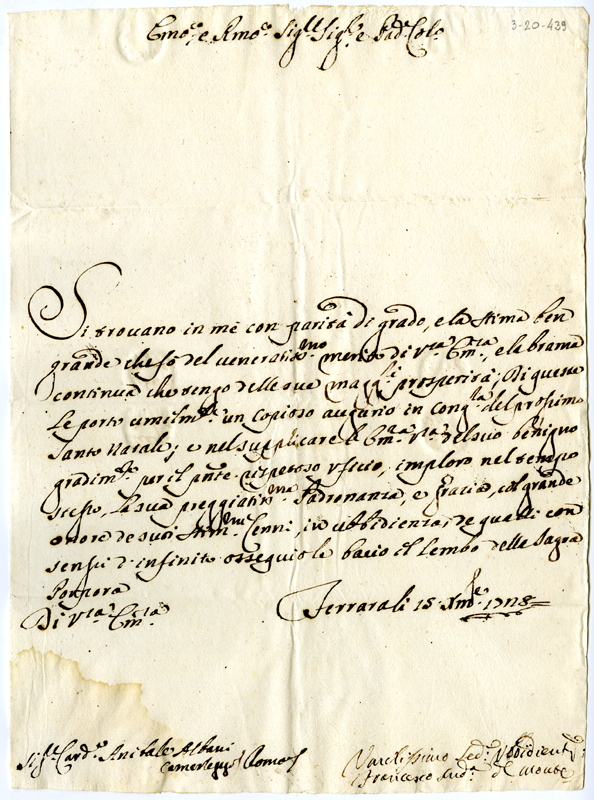 3-20-439
Emo: e Rmo: Sigre Sigre e Padne Colo
Si trovano in mè con parità di grado, e la stima ben
grande che fò del veneratismo merito di Vra Emza, e la brama
continua che tengo delle sue maggri prosperità; Di queste
Le porto umilmte un copioso augurio in congra del prossimo
Santo Natale; e nel supplicare l'Emza Vra del suo benigno
gradimto per il pnte rispetoso ufficio, imploro nel tempo
stesso, la sua preggiatisma Padronanza, e grazia, col grande
onore de suoi Stimmi Cenni, in ubbidienza, de quali con
sensi d'infinito ossequio le bacio il Lembo della Sagra
Porpora
Di Vra Emza
Ferrara li 15 Xmbre 1728
Sigre Cardle Anibale Albani
Camerlengo Roma
Umilissimo Ubbidient
Francesco de Monte